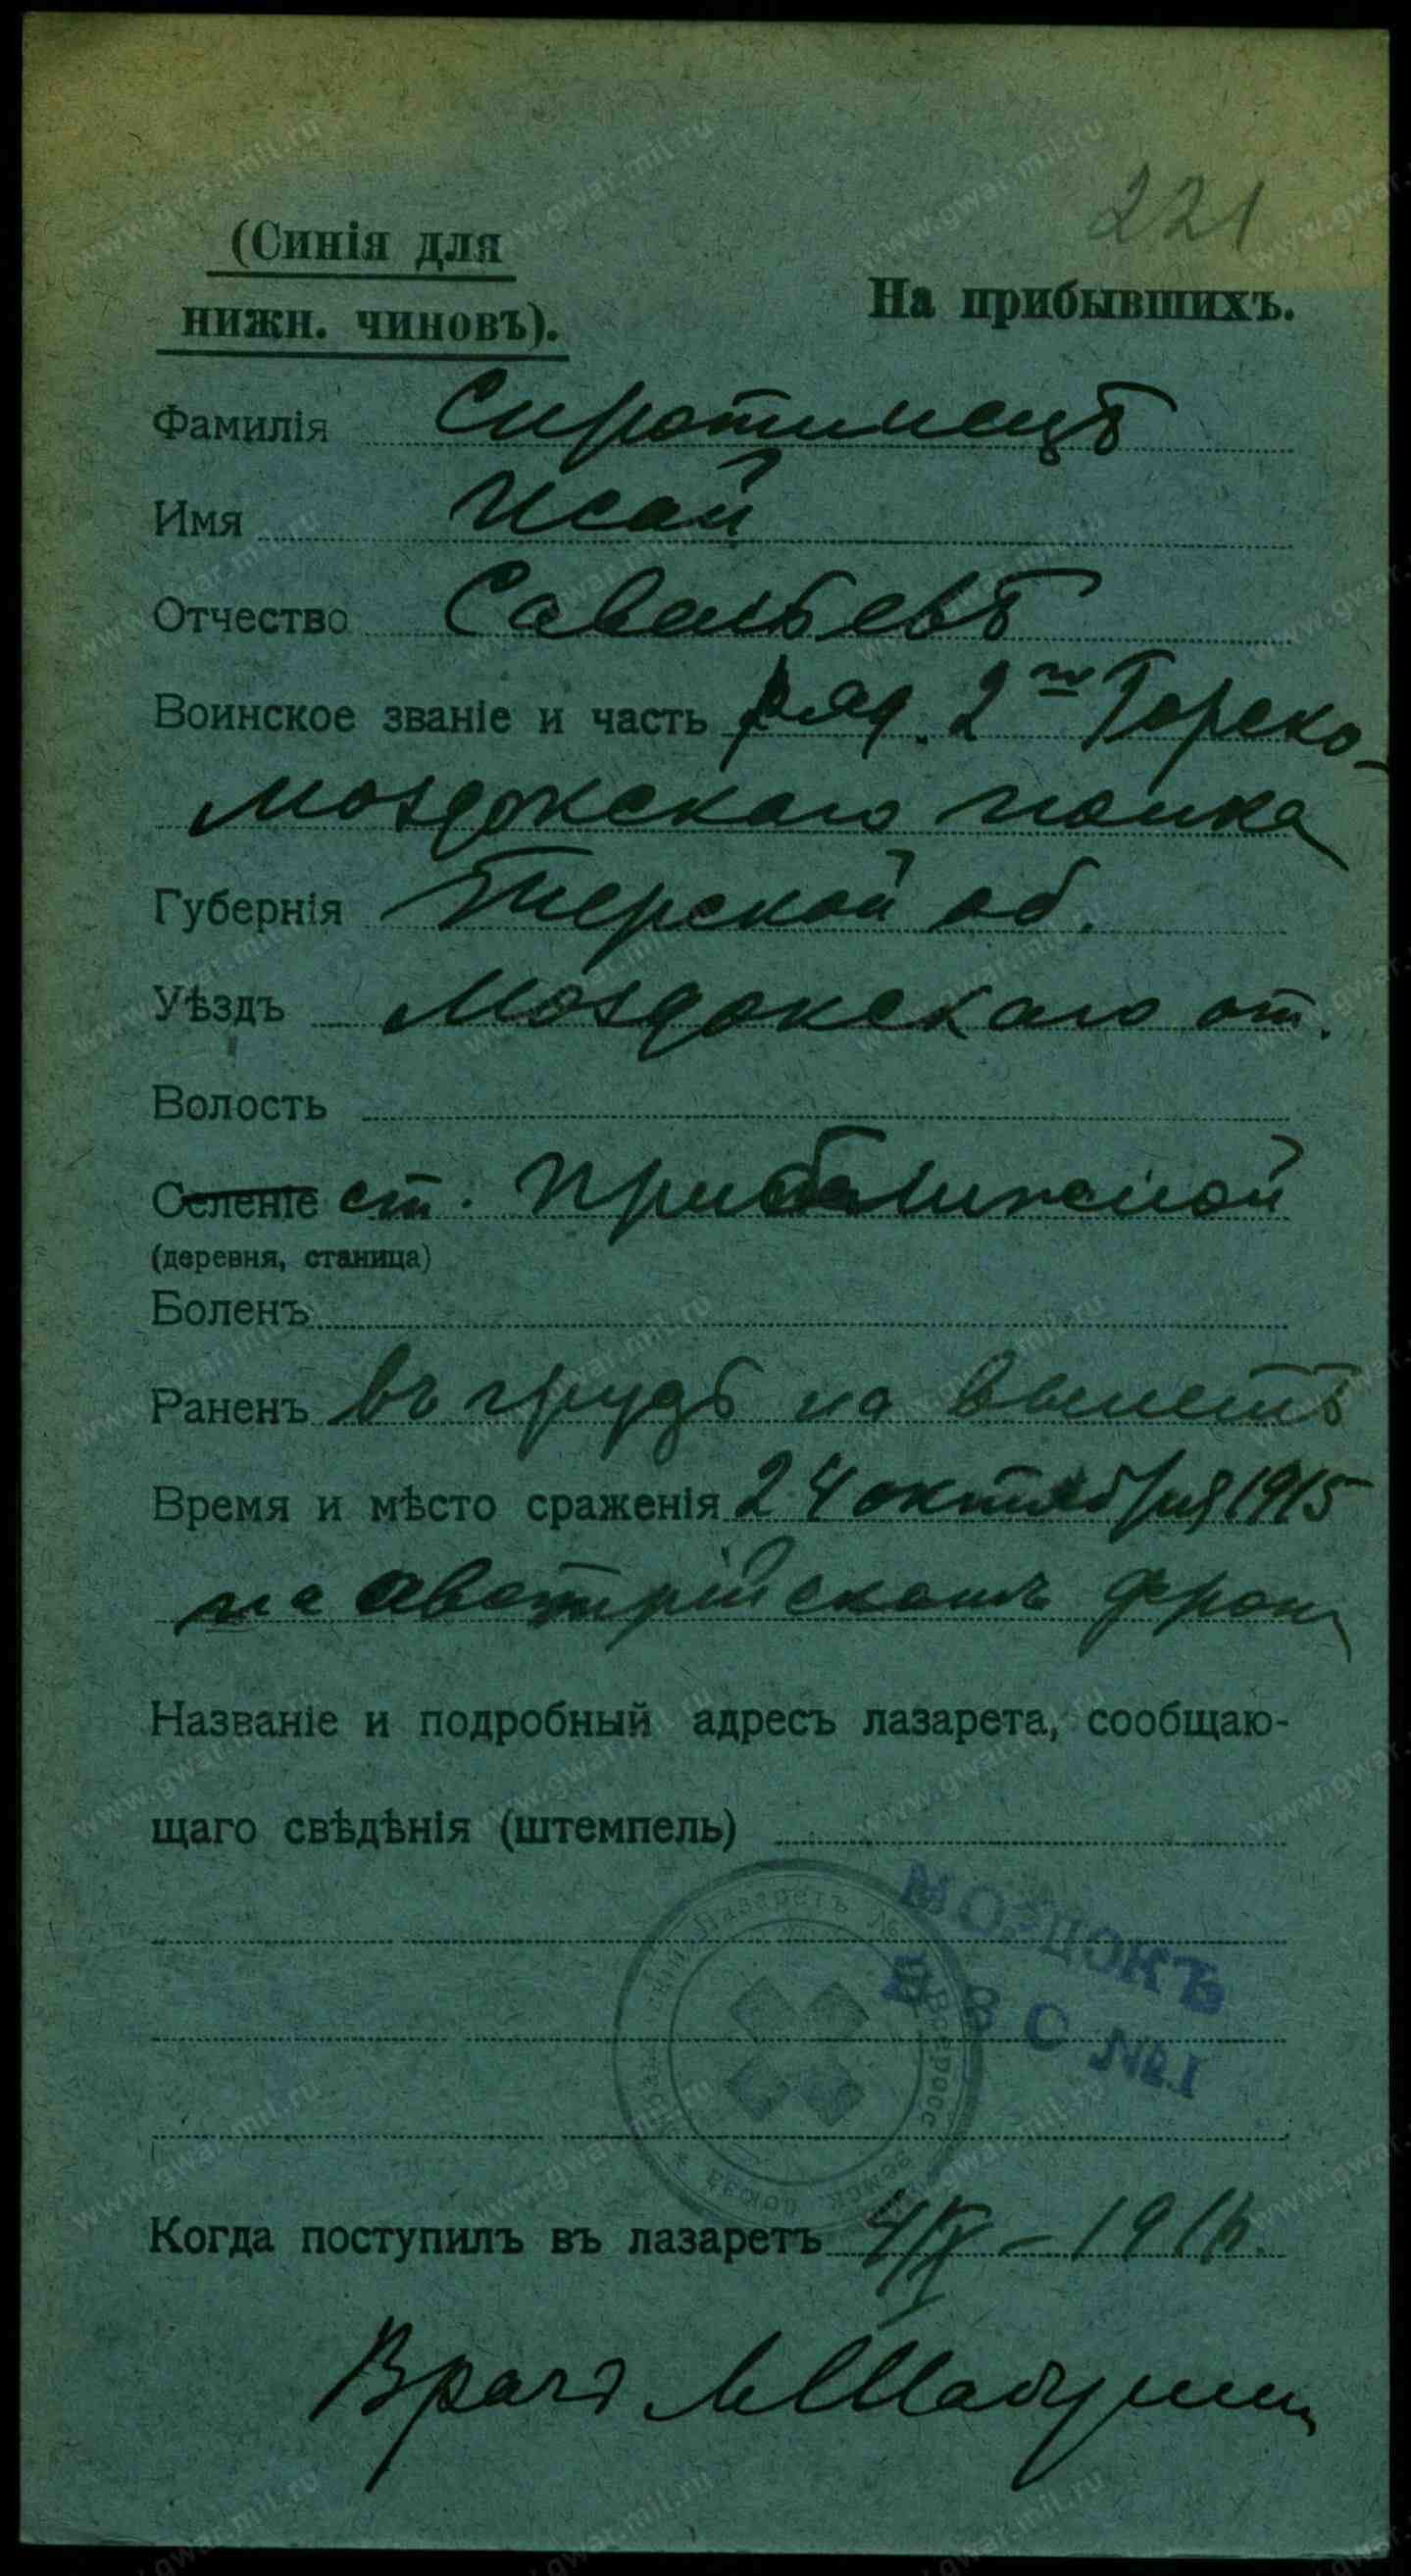 221
(Синія для
нижн. чиновъ).
На прибывшихъ.
Фамилія Сиротинецъ
Имя Исай
Отчество Савельевъ
Воинское званіе и часть ряд. 2го Горско-
моздокскаго полка
Губернія Терской об.
Уѣздъ Моздокскаго от.
Волость
Селеніе ст. Приближной
(деревня, станица)
Боленъ
Раненъ въ грудь на вылетъ
Время и мѣсто сраженія 24 октября 1915
на австрійскомъ фрон
Названіе и подробный адресъ лазарета, сообщаю-
щаго свѣдѣнія (штемпель)
Лазаретъ № Всеросс. земск. союза
МОЗДОКЪ
В З С №1
Когда поступилъ въ лазаретъ 4/IV – 1916.
Врачъ